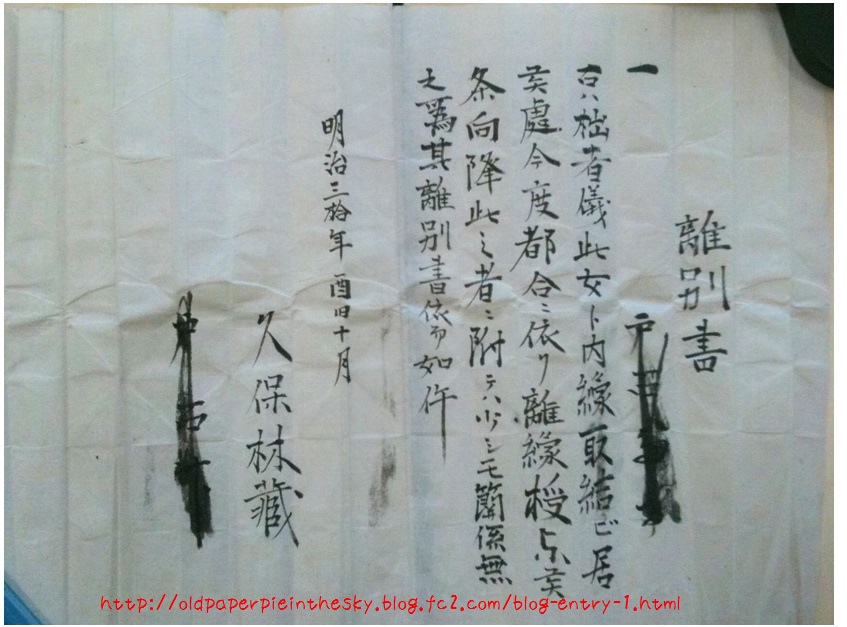 離別書
一
右ハ拙者儀此女ト内縁取結ビ居
候處今度都合ニ依リ離縁授与候
条向降此之者ニ附テハ少シモ簡係無
之為其離別書依而如件
明治三拾年酉旧十月
久保林藏
http://oldpaperpieinthesky.blog.fc2.com/blog-entry-1.html